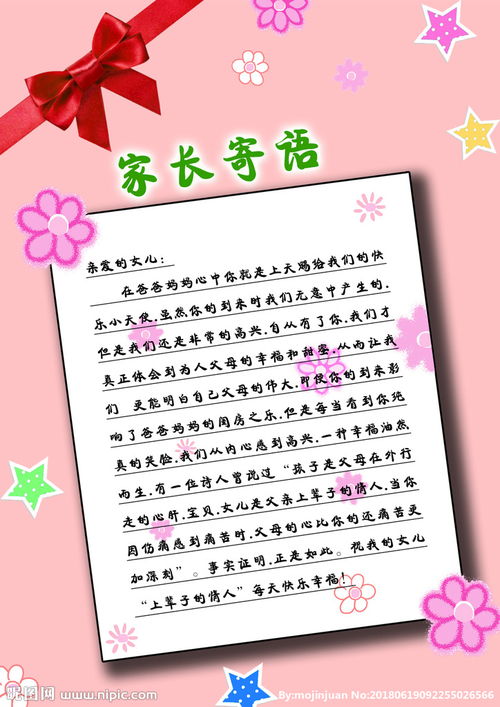 家长寄语
亲爱的女儿：
在爸爸妈妈心中你就是上天赐给我们的快
乐小天使.虽然你的到来时我们无意中产生的.
但是我们还是非常的高兴.自从有了你.我们才
真正体会到为人父母的幸福和甜蜜.从而让我
们 更能明白自己父母的伟大.即使你的到来影
响了爸爸妈妈的闺房之乐.但是每当看到你纯
真的笑脸.我们从内心感到高兴.一种幸福油然
而生.有一位诗人曾说过“孩子是父母在外行
走的心肝.宝贝.女儿是父亲上辈子的情人.当你
因伤痛感到痛苦时.父母的心比你的还痛苦更
加深刻”。事实证明.正是如此。祝我的女儿
“上辈子的情人”每天快乐幸福！
昵图网 www.nipic.com
By:mojinjuan No:20180619092255026566